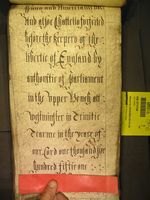 and also Chattells forfeited
before the keepers of the
libertie of England by
authoritie of Parliament
in the upper Bench att
Westminster in Trinitie
Tearme in the yeare of
our Lord one thousand six
hundred fiftie one